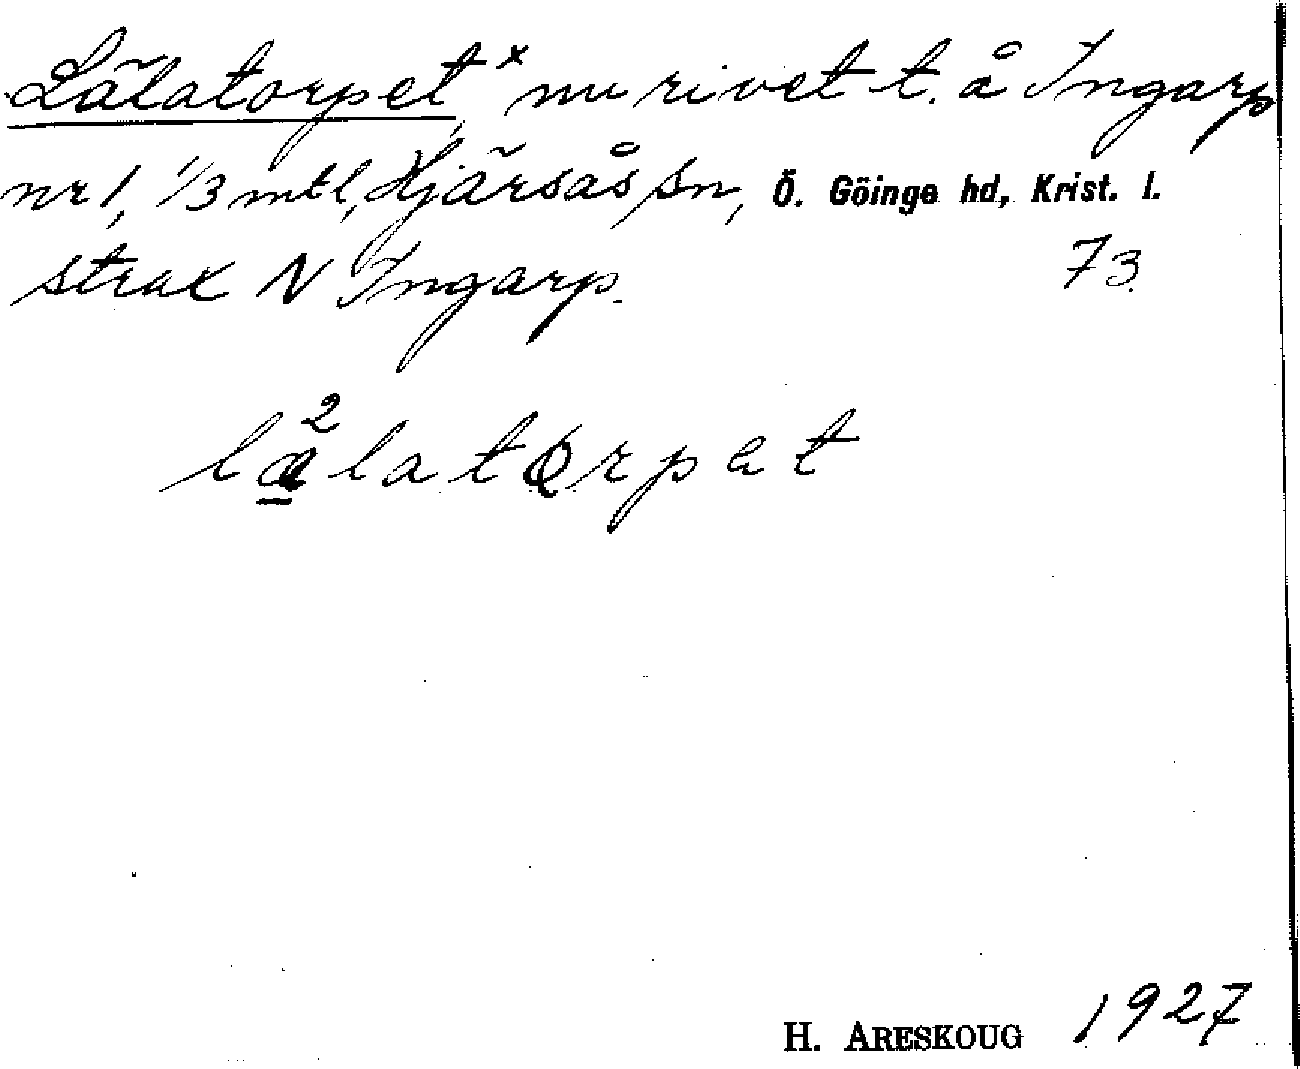 Lälatorpet,ˣ nu rivet t. å Ingarp
nr 1, 1/3 mtl, Hjärsås sn, Ö. Göinge hd, Krist. l.
strax N Ingarp. 73.
la²latorpat
H. ARESKOUG 1927